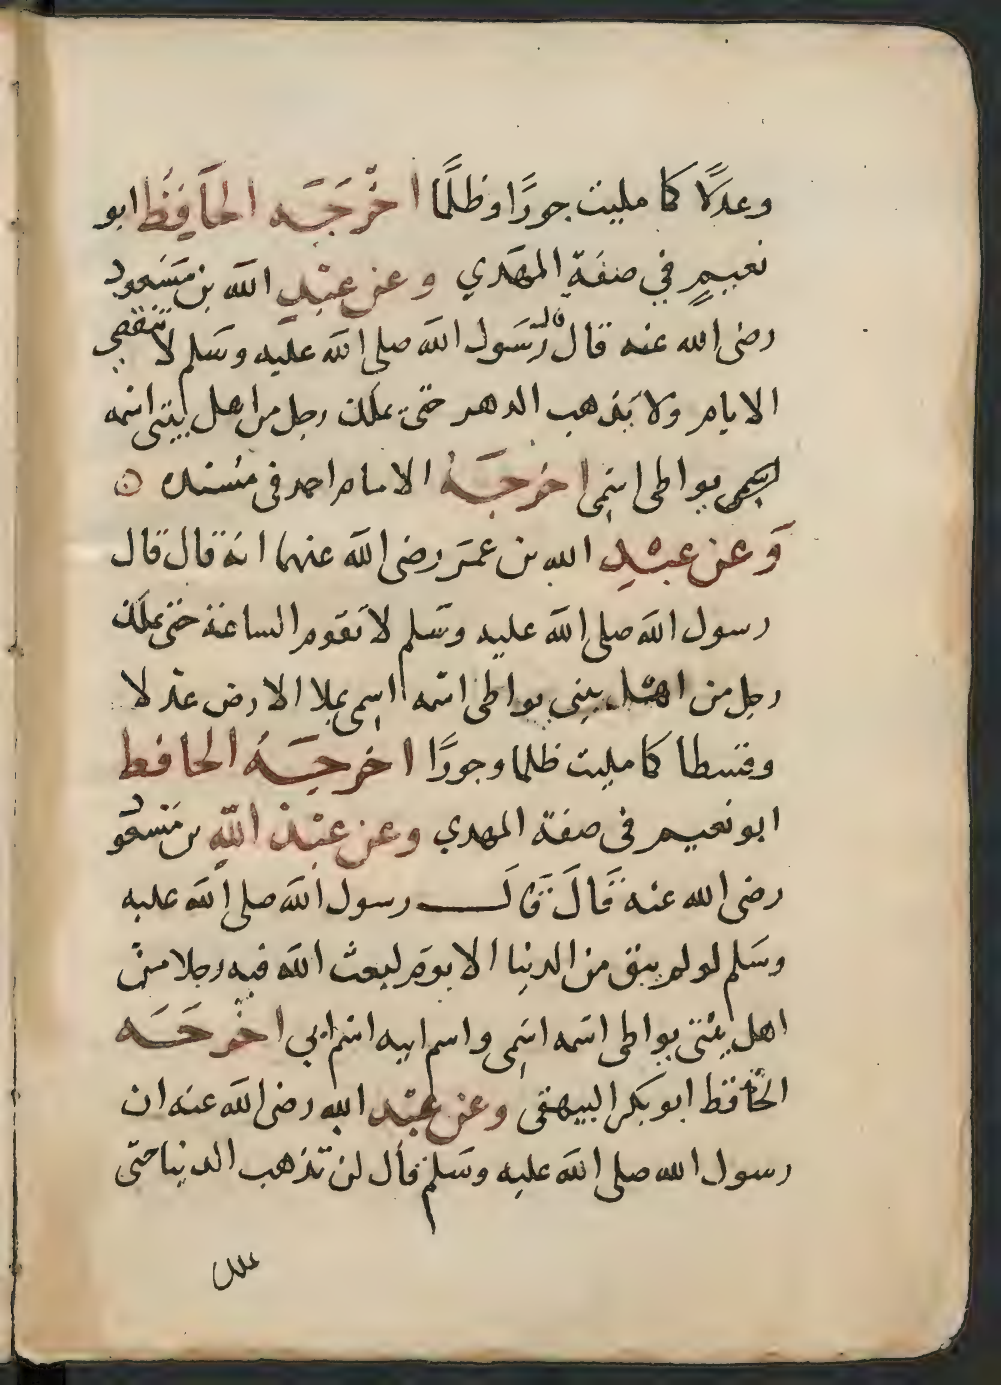 وعدلًا كما مليت جورًا وظلمًا اخْرَجَه الحَافِظ ابو
نعيمٍ في صفةِ المهدي وعن عبْدِ الله بن مَسَعود
رضى الله عنه قال قال رَسَول الله صلى الله عليه وسَلم لا تنقضي
الايام ولا يَذهب الدهر حتى يملك رجل من اهل بيتى اسمه
اسمى يواطى اسمِى اخرجَهُ الامام احمد في مسنده ه
وَعن عبْدِ الله بن عمَر رضى الله عنهما انه قال قال
رسول الله صلى الله عليه وسَلم لا تقوم الساعة حتى يملك
رجل من اهْل بيتى يواطى اسمه اسمى يملا الارض عدلا
وقسطا كما مليت ظلما وجورًا اخرجَهُ الحافظ
ابو نعيم فى صفة المهدي وعن عبْد اللهِ بن مَسْعود
رضى الله عنه قَالَ قَالَ رسول الله صلى الله عليه
وسَلم لو لم يبق من الدنيا الا يوم لبعث الله فيه رجلا من
اهل بيْتى يواطى اسمه اسمِى واسم ابيه اسم ابي اخْرجَه
الحَافظ ابو بكر البيهقى وعن عبْد الله رضى الله عنه ان
رسول الله صلى الله عليه وسَلم قال لن تذهب الدنيا حتى
يملك